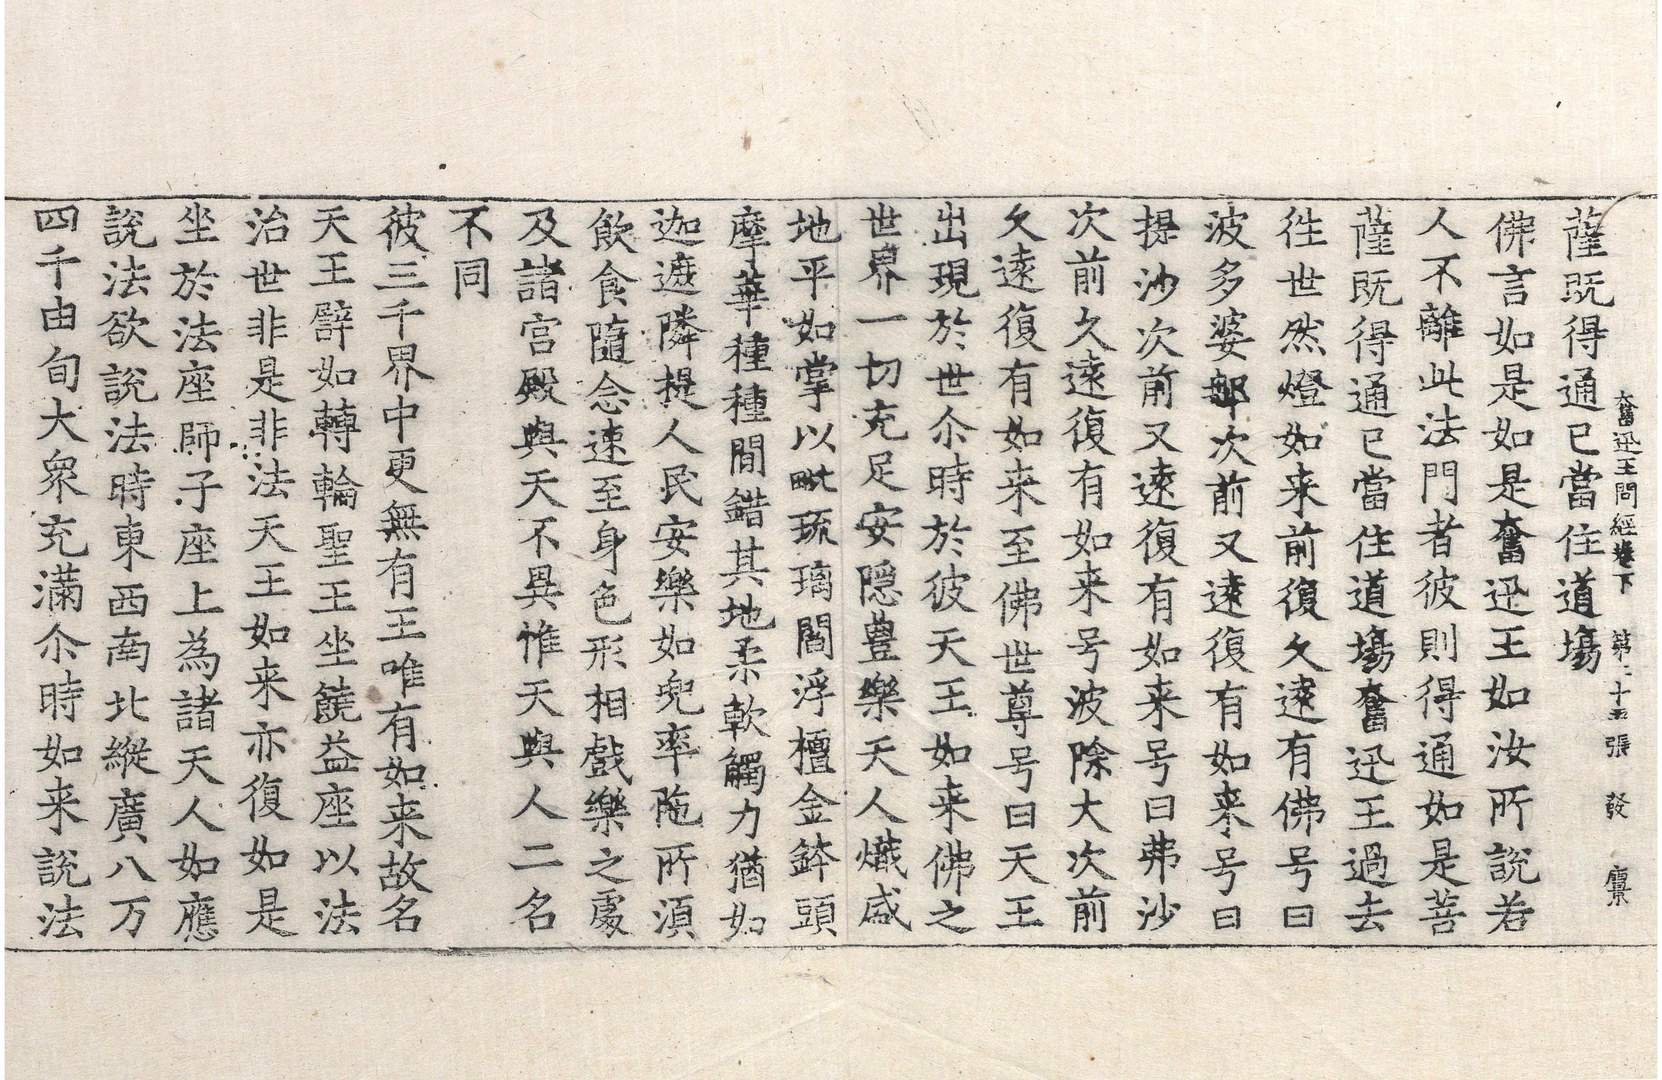 奮迅王問經卷下　第二十五張　發
薩既得通已當住道場
佛言如是如是奮迅王如汝所說若
人不離此法門者彼則得通如是菩
薩既得通已當住道場奮迅王過去
徃世然燈如来前復久遠有佛号曰
波多婆㖠次前又遠復有如来号曰
提沙次前又遠復有如来号曰弗沙
次前久遠復有如来号波除大次前
久遠復有如来至佛世尊号曰天王
出現於世尒時於彼天王如来佛之
世界一切充足安隠豊樂天人熾盛
地平如掌以毗琉璃閻浮檀金鉢頭
摩華種種間錯其地柔軟觸力猶如
迦遮隣提人民安樂如兜率陁所湏
飲食隨念速至身色形相戲樂之處
及諸宮殿與天不異惟天與人二名
不同
彼三千界中更無有王唯有如来故名
天王譬如轉輪聖王坐饒益座以法
治世非是非法天王如来亦復如是
坐於法座師子座上為諸天人如應
說法欲說法時東西南北縱廣八万
四千由旬大衆充滿尒時如来說法